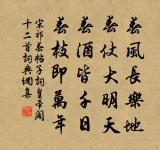 春風長樂地
春仗大明天
春酒皆千日
春枝即萬年
宋祁春帖子詞皇帝閣
十二首詞典網集